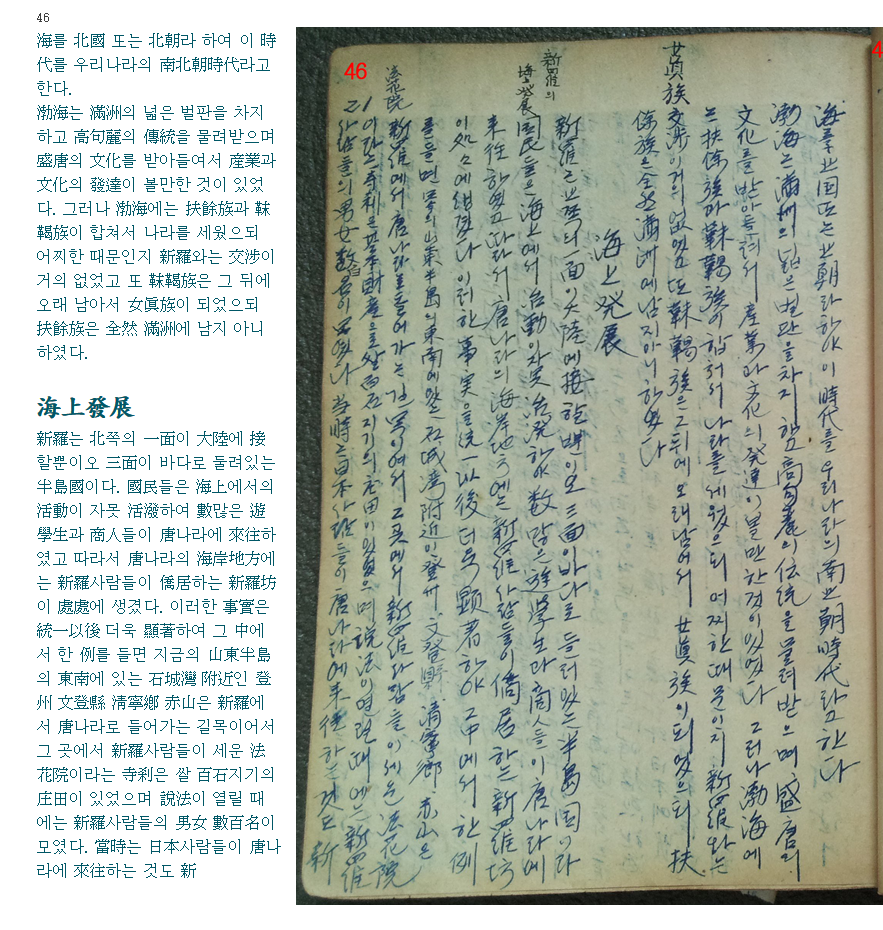 46
海를 北國 또는 北朝라 하여 이 時
代를 우리나라의 南北朝時代라고
한다.
渤海는 滿洲의 넓은 벌판을 차지
하고 高句麗의 傳統을 물려받으며
盛唐의 文化를 받아들여서 産業과
文化의 發達이 볼만한 것이 있었
다. 그러나 渤海에는 扶餘族과 靺
鞨族이 합쳐서 나라를 세웠으되
어찌한 때문인지 新羅와는 交涉이
거의 없었고 또 靺鞨族은 그 뒤에
오래 남아서 女眞族이 되었으되
扶餘族은 全然 滿洲에 남지 아니
하였다.
海上發展
新羅는 北쪽의 一面이 大陸에 接
할뿐이오 三面이 바다로 둘려있는
半島國이다. 國民들은 海上에서의
活動이 자못 活潑하여 數많은 遊
學生과 商人들이 唐나라에 來往하
였고 따라서 唐나라의 海岸地方에
는 新羅사람들이 僑居하는 新羅坊
이 處處에 생겼다. 이러한 事實은
統一以後 더욱 顯著하여 그 中에
서 한 例를 들면 지금의 山東半島
의 東南에 있는 石城灣 附近인 登
州 文登縣 淸寧鄕 赤山은 新羅에
서 唐나라로 들어가는 길목이어서
그 곳에서 新羅사람들이 세운 法
花院이라는 寺刹은 쌀 百石지기의
庄田이 있었으며 說法이 열릴 때
에는 新羅사람들의 男女 數百名이
모였다. 當時는 日本사람들이 唐나
라에 來往하는 것도 新
46
海를 北国 또는 北朝라 하야 이 時代를 우리나라의 南北朝時代라고 한다
渤海는 滿洲의 넓은 벌판을 차지하고 高句麗의 伝統을 물려받으며 盛唐의
文化를 받아들여서 産業과 文化의 発達이 볼만한것이 있었다 그러나 渤海에
는 扶餘族과 靺鞨族이 합처서 나라를 세웠으되 어찌한 때문인지 新羅와는
女眞族
交涉이 거의 없었고 또 靺鞨族은 그 뒤에 오래 남어서 女眞族이 되었으되 扶
餘族은 全然 滿洲에 남지 아니하였다
海上発展
新羅의
海上発展
新羅는 北쪽의 一面이 大陸에 接할뿐이오 三面이 바다로 둘러있는 半島国이다
国民들은 海上에서 活動이 자못 活潑하야 数많은 遊學生과 商人들이 唐나라에
来往하였고 따라서 唐나라의 海岸地方에는 新羅사람들이 僑居하는 新羅坊
이 処々에 생겼다 이러한 事実은 統一以後 더욱 顯著하야 그中에서 한 例
를 들면 지금의 山東半島의 東南에 있는 石城湾 附近인 登州 文登縣 淸寧鄕 赤山은
法花院
新羅에서 唐나라로 들어가는 길목이여서 그곳에서 新羅사람들이 세운 法花院
이라는 寺刹은 쌀 百石지기의 庄田이 있었으며 說法이 열릴 때에는 新羅
사람들의 男女 数百名이 모였다 当時는 日本사람들이 唐나라에 来往하는것도 新